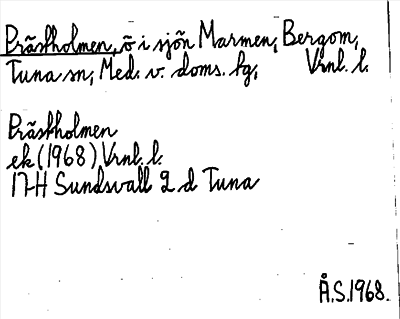 Prästholmen, ö i sjön Marmen, Bergom,
Tuna sn, Med. v. doms. tg, Vrnl. l.
Prästholmen
ek (1968) Vrnl. l.
17H Sundsvall 2 d Tuna
Å.S. 1968.